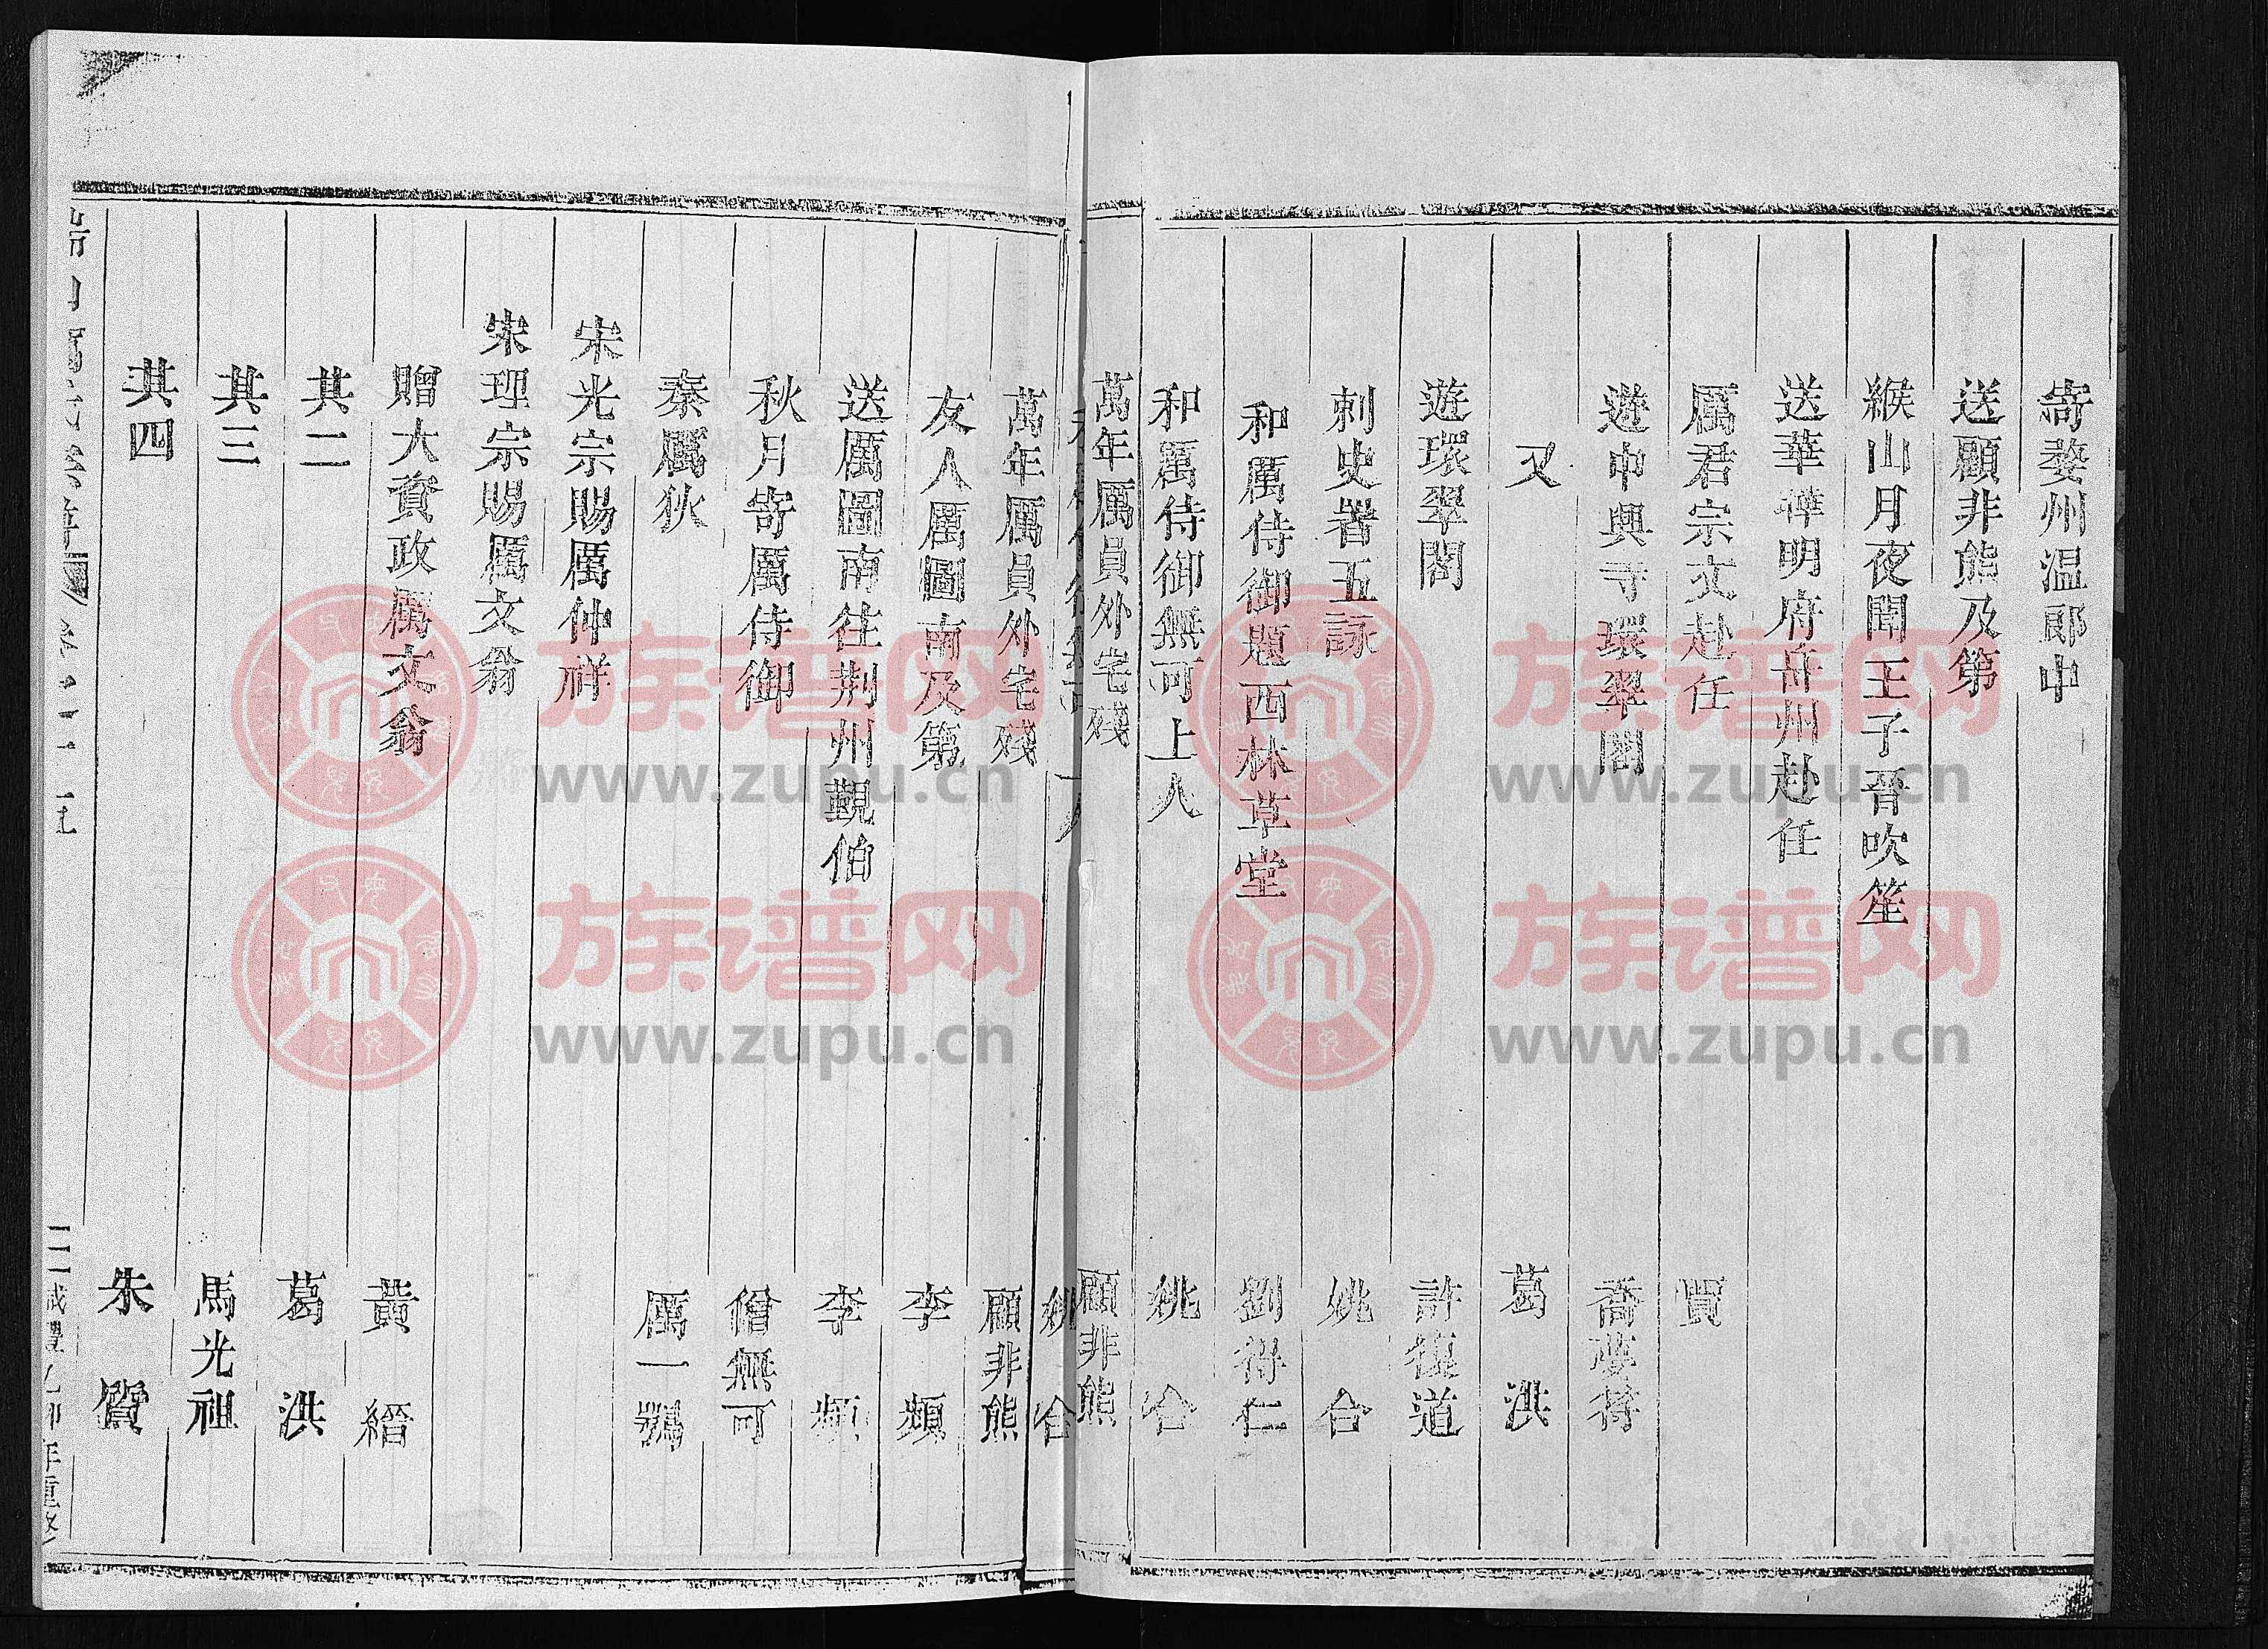 寄婺州温郎中
送顧非熊及第
緱山月夜聞王子晉吹笙
送華
明府
州赴任
厲君宗文赴任 賈
遊中興寺環翠閣 喬夢符
又 葛洪
遊環翠閣 許復道
刺史
五詠 姚合
和厲侍御題西林草堂 劉得仁
和厲侍御無可上人 姚合
萬年厲員外宅殘 顧非熊
姚合
萬年厲員外宅殘 顧非熊
友人厲圖南及第 李頻
送厲圖南往荆州覲伯 李頻
秋月寄厲侍御 僧無可
秦厲狄 厲一鶚
宋光宗賜厲仲祥
宋理宗賜厲文翁
贈大資政厲文翁 黃縉
其二 葛洪
其三 馬光祖
其四 朱質
年重修
族谱网
www.zupu.cn
族谱网
www.zupu.cn
族谱网
www.zupu.cn
族谱网
www.zupu.cn